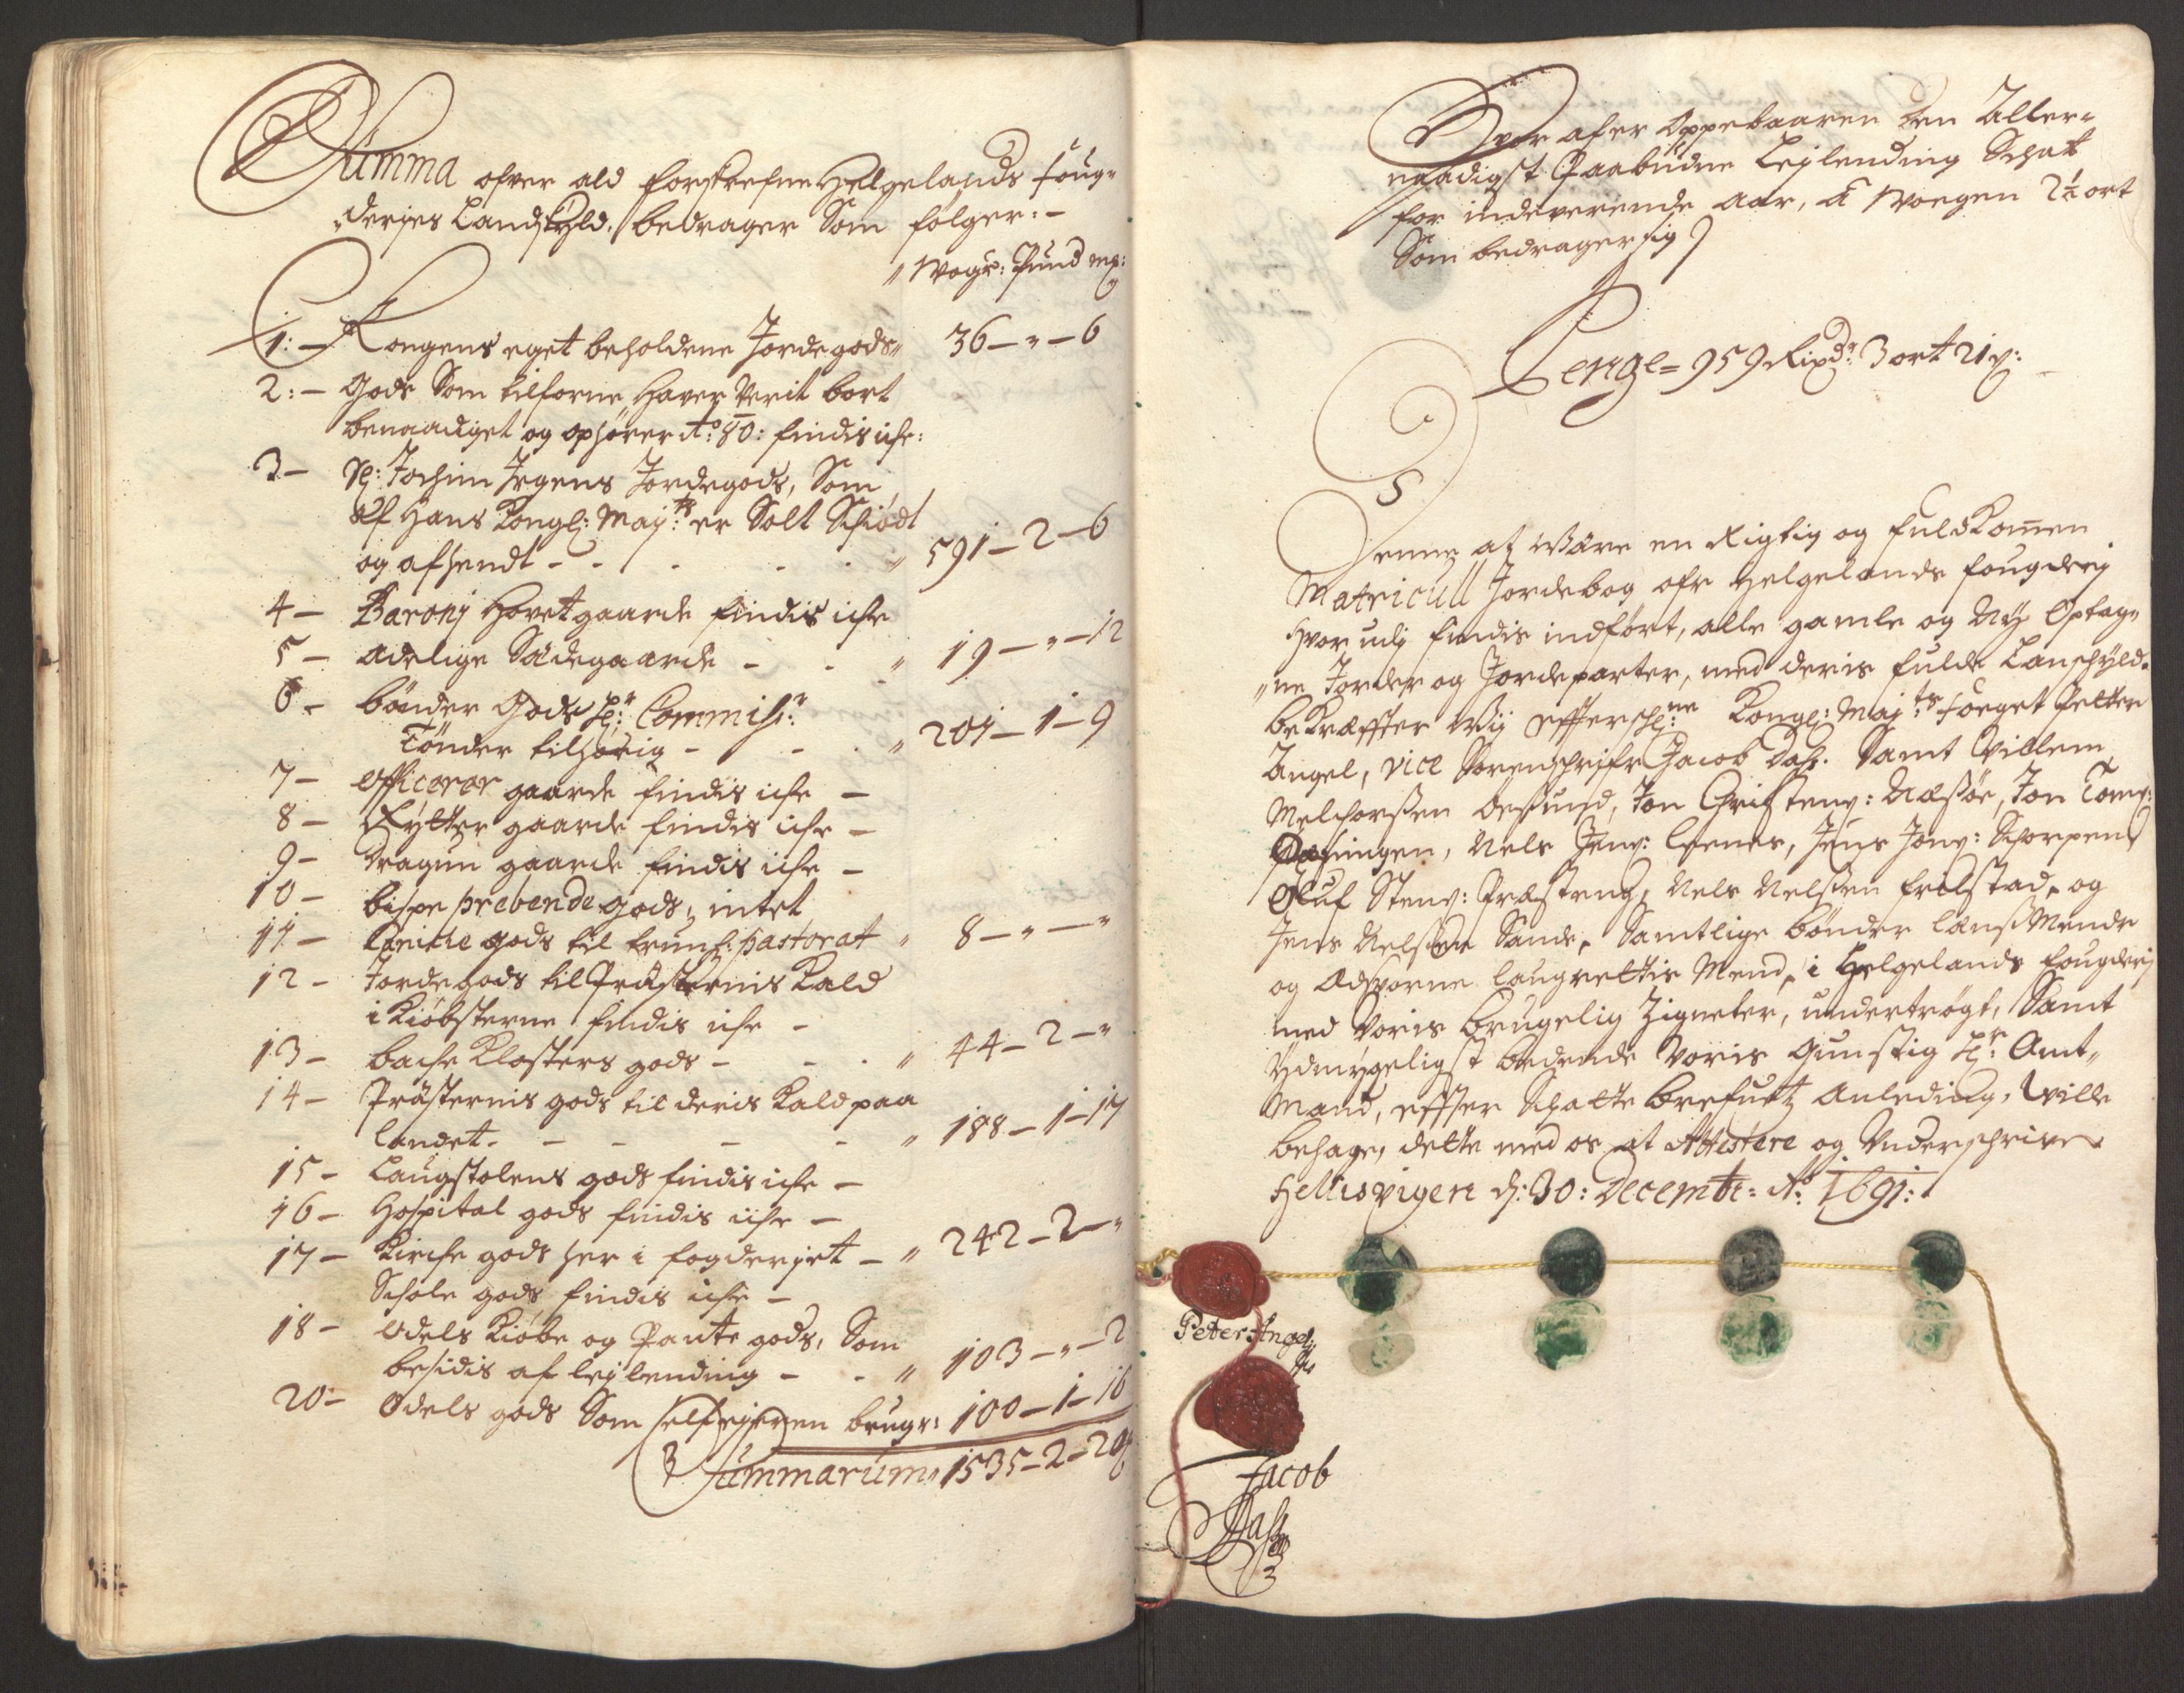 Summa ofver ald forskrefne Helgelands foug-
deries Landskyld, bedrager Som følger:-
Wogr: Pund mrk:
1:- Kongens eget beholdene Jordegods 36-"-6
2:- Gods Som tilforne Hafver Verit bort
benaadiget og ophører Ao: 80: findis iche:
3- Sl: Jochim Jrgens Jordegods, Som
af Hans Kongl: Maj:ts er Solt Schiødt
og afhendt - - - - " 591-2-6
4- Baronj Hovetgaarde findis iche
5- Adelige Sædegaarde - - " 19-"-12
6- bønder Gods Hr: Commiss:r
Tønder tilhørig - - - " 201-1-9
7- officerer gaarde findis iche -
8- Rytter gaarde findis iche -
9- Dragun gaarde findis iche -
10- bispe prebende gods, intet
11- gods til trunh: pastorat " 8-"-"
12- Jordegods til Præsternis Kald
i Kiøbsterne findis iche -
13- bache Klosters gods - - " 44-2-"
14- Præsternis gods til deris Kald paa
landet - - - - " 188-1-17
15- Laugstolens gods findis iche -
16- Hospital gods findis iche -
17- Kirche gods her i fogderjet - " 242-2-"
Schole gods findis iche -
18- odels Kiøbe og Pante gods, Som
besidis af lejlending - - " 103-"-2
20- Odels gods Som selfejeren brugr: 100-1-16
Summarum " 1535-2-20
Hvor af er Oppebaaren den Aller-
naadigst Paabudne Lejlending Schatt
for indeverende aar, à Woegen 2½ ort
Som bedrager sig
Penge= 959 Rixdr: 3 ort 21 s:
Denne at Være en Rigtig og fuldkomen
Matricull Jordebog ofr Helgelands fougderj
Hvor udj findis indført, alle gamle og Ny Optag-
ne Jorder og Jordeparter, med deris fulde Lanschyld.
bekræffter Wij effterschr:ne Kongl: Maj:ts foeget Petter
Angel, vice Sorenschrifr Jacob Dass. Samt Villem
Melchorsen Øesund, Jon Christens: Næssøe, Jon Toms:
Nels Jens: Leenes, Jens Jons: Schorpen
Oluf Stens: Præsteng, Nels Nelsen frilstad, og
Jens Nelssen Sande, Samtlige bønder lensMende
og Edsvorne laugrettis Mend, i Helgelands fougderj
med Voris brugelig Zigneter, undertrøgt, Samt
Ydmygeligst bedende Voris Gunstig Hr: Amt-
Mand, effter Schatte brefvetz Anleding, Ville
behage, dette med os at Attestere og Underschrive
Hellesvigen d: 30: Decembr: Ao: 1691:
Peter Angel
Jacob
Dass